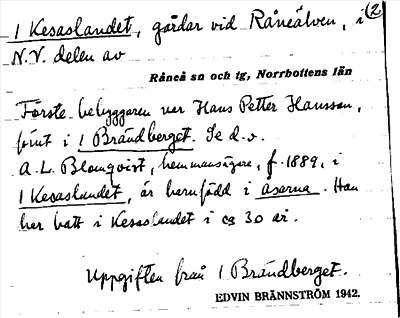 1 Kesaslandet, gårdar vid Råneälven, i (2)
N.V. delen av
Råneå sn och tg, Norrbottens län
Förste bebyggaren var Hans Petter Hansson,
först i 1 Brändberget. Se d.o.
A.L. Blomqvist, hemmansägare, f. 1889, i
1 Kesaslandet, är barnfödd i Åsarna. Han
har bott i Kesaslandet i ca 30 år.
Uppgiften från 1 Brändberget.
EDVIN BRÄNNSTRÖM 1942.